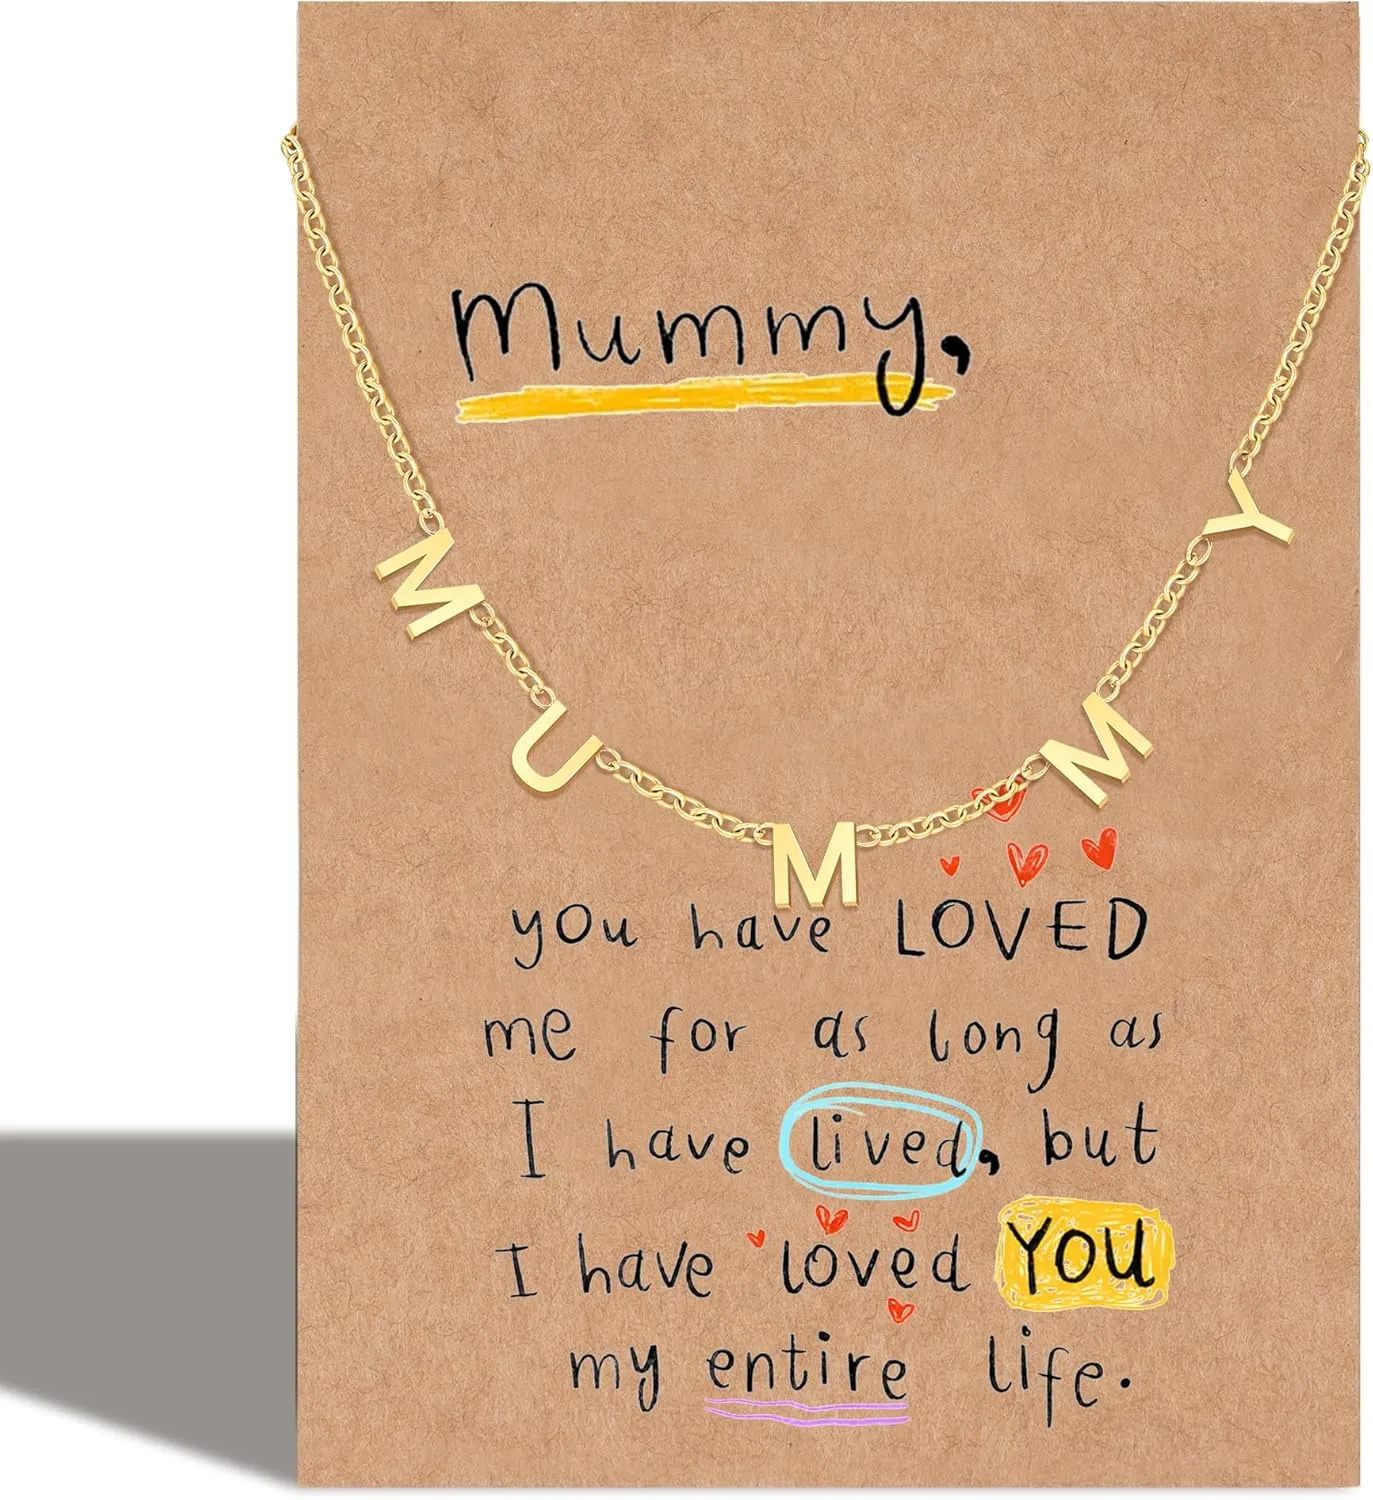 Mummy,
MUMMY
you have LOVED
me for as long as
I have lived, but
I have loved YOU
my entire life.